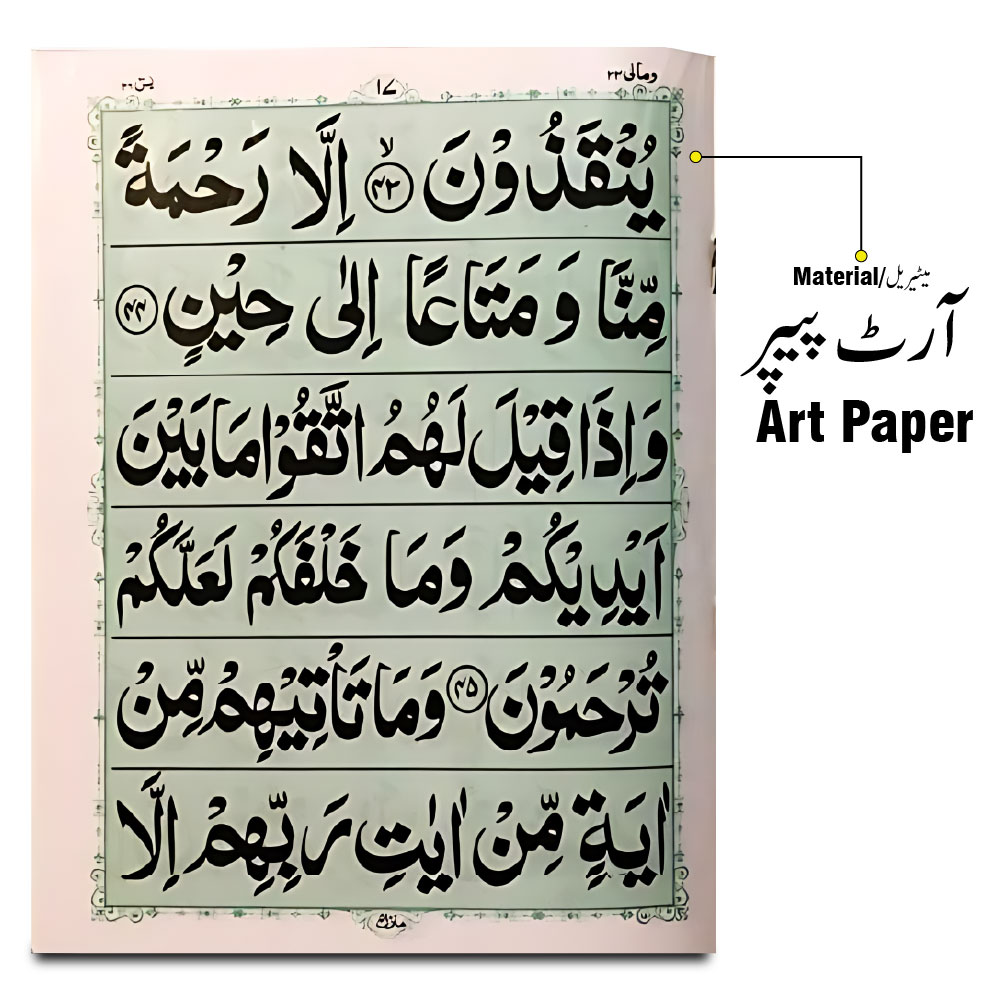 ومالی ۲۳
۱۷
یٰسٓ ۳۶
یُنْقَذُوْنَ ﴿۴۳﴾ۙ اِلَّا رَحْمَةً
مِّنَّا وَ مَتَاعًا اِلٰی حِیْنٍ ﴿۴۴﴾
وَاِذَا قِیْلَ لَهُمُ اتَّقُوْا مَا بَیْنَ
اَیْدِیْكُمْ وَمَا خَلْفَكُمْ لَعَلَّكُمْ
تُرْحَمُوْنَ ﴿۴۵﴾ وَمَا تَاْتِیْهِمْ مِّنْ
اٰیَةٍ مِّنْ اٰیٰتِ رَبِّهِمْ اِلَّا
Material/میٹیریل
آرٹ پیپر
Art Paper